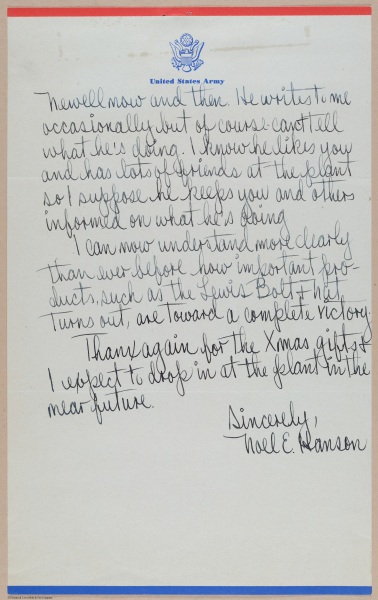 United States Army
Newell now and then. He writes to me
occasionally but of course can't tell
what he's doing. I know he likes you
and has lots of friends at the plant
so I suppose he keeps you and others
informed on what he's doing
I can now understand more clearly
than ever before how important pro-
ducts, such as the Lewis Bolt & Nut
turns out, are toward a complete victory.
Thanx again for the Xmas gifts &
I expect to drop in at the plant in the
near future.
Sincerely,
Noel E. Hanson